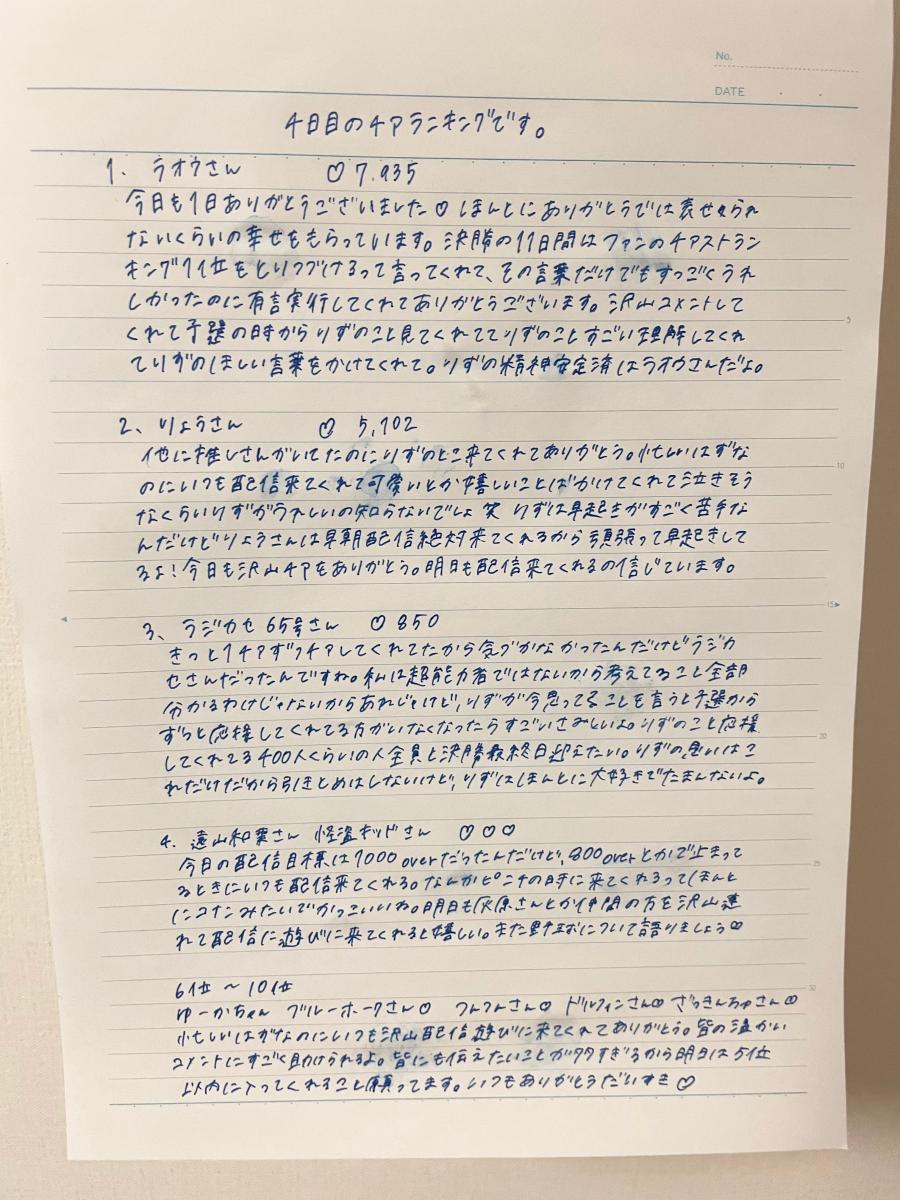 No.
DATE
4日目のチアランキングです。
1. ラオウさん ♡7.935
今日も1日ありがとうございました♡ほんとにありがとうでは表せられ
ないくらいの幸せをもらっています。決勝の11日間はファンのチアストラン
キング1位をとりつづけるって言ってくれて、その言葉だけでもすっごくうれ
しかったのに有言実行してくれてありがとうございます。沢山コメントして
くれて予選の時からりずのこと見てくれててりずのことすごい理解してくれ
てりずのほしい言葉をかけてくれて。りずの精神安定済はラオウさんだよ。
2、りょうさん ♡ 5,102
他に推しさんがいてたのにりずのとこ来てくれてありがとう。忙しいはずな
のにいつも配信来てくれて可愛いとか嬉しいことばかけてくれて泣きそう
なくらいりずがうれしいの知らないでしょ笑 りずは早起きがすごく苦手な
んだけどりょうさんは早朝配信絶対来てくれるから頑張って早起きして
るよ!今日も沢山チアをありがとう。明日も配信来てくれるの信じています。
3、ラジカセ65号さん ♡850
きっと1チアずつチアしてくれてたから気づかなかったんだけどラジカ
セさんだったんですね。私は超能力者ではないから考えてること全部
分かるわけじゃないからあれじゃけど、りずが今思ってることを言うと予選から
ずっと応援してくれてる方がいなくなったらすごいさみしいよ。りずのこと応援
してくれてる400人くらいの人全員と決勝最終日迎えたい。りずの思いはこ
れだけだから引きとめはしないけど、りずはほんとに大好きでたまんないよ。
4. 遠山和葉さん 怪盗キッドさん ♡♡♡
今日の配信目標は1000overだったんだけど、800overとかで止まって
るときにいつも配信来てくれる。なんかピンチの時に来てくれるってほんと
にコナンみたいでかっこいいね。明日も灰原さんとか仲間の方を沢山連
れて配信に遊びに来てくれると嬉しい。また野球について語りましょう♡
6位〜10位
ゆーかちゃん ブルーホークさん♡ フムフムさん♡ ドルフィンさん♡ ざっきんちゅさん♡
忙しいはずなのにいつも沢山配信遊びに来てくれてありがとう。皆の温かい
コメントにすごく助けられるよ。皆にも伝えたいことが多すぎるから明日は5位
以内に入ってくれること願ってます。いつもありがとうだいすき♡
5
10
15
20
25
30